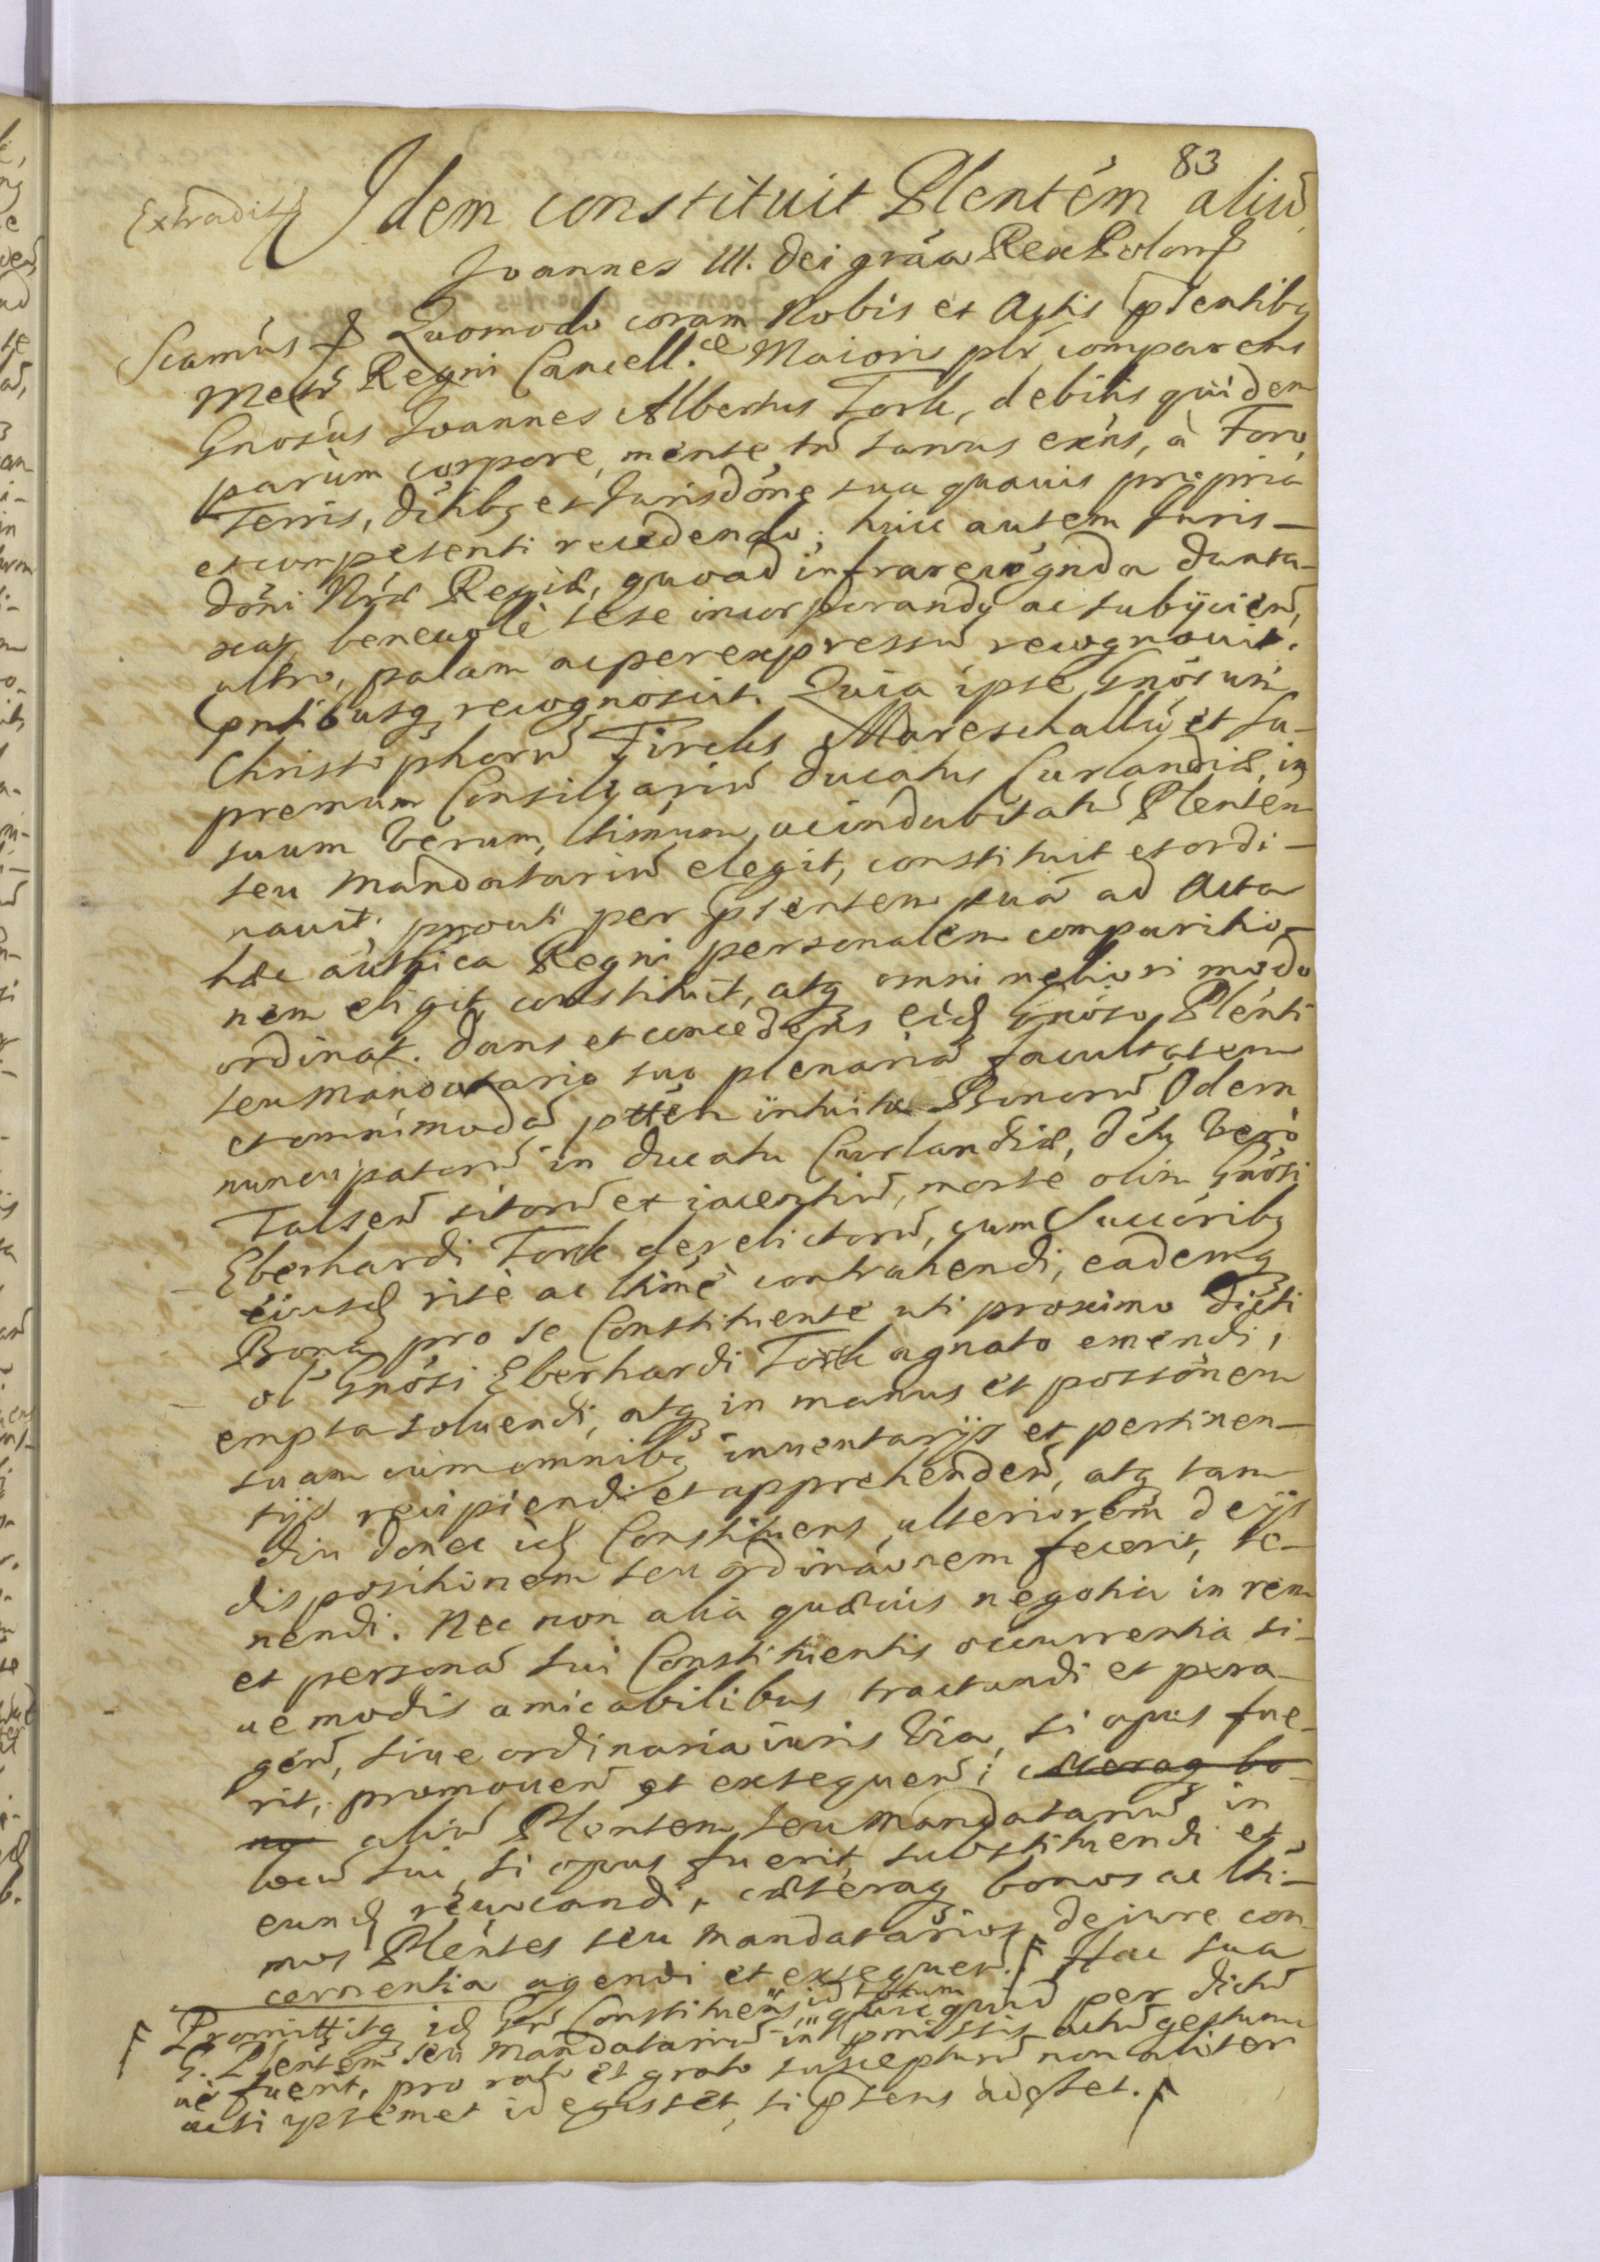 83
Extradit
Idem constituit Plentém aliũ
Joannes III. Dei grãa Rex Polon
Scamús Quomodo coram Nobis et Actis pñtibq
Metr Regni Cancell.æ Maioris plr comparens
Gnosus Joannes Albertus Tork, debilis quidem
parùm corpore, mente tñ sanus exñs, à Foro,
Terris, Ditibq et Jurisdõne sua quavis propria
et competenti recedendo; huic autem Juris-
dõni Nrã Regiæ, quoad infrarecognda dunta-
xat benevolè sese incorporando ac subijcieñ,
ultro, palam ac per expressũ recognovit.
Pntibusq recognoscit. Quia ipse Gnosum
Christophorũ Fircks Mareschallũ et Su-
premum Consiliariũ Ducatus Curlandiæ, in
suum Verum, ltimum, ac indubitatũ Plentẽm
seu Mandatariũ elegit, constituit et ordi-
navit, prout per psentem suã ad Acta
hæc authtica Regni personalem comparitio-
nem eligit, constituit, atq omni meliori modo
ordinat. Dans et concedens eidem Gnoso Plénti
seu Mandatario suo plenariã facultatem
et omnimodã pttẽm intuitu Bonorũ Odern
nuncupatorũ in Ducatu Curlandiæ, Dctu Verò
Talsen sitorũ et iacentiũ, morte olim Gnõsi
Eberhardi Tork derelictorũ, cum Succoribq
eiusd ritè ac ltimè contrahendi, eademq
Bona pro se Constituente uti proximo Dicti
ol Gnõsi Eberhardi Tork agnato emendi,
empta solvendi, atq in manus et possõnem
suam cum omnibq inventarijs et pertinen-
tijs recipiendi et apprehendeñ, atq tam
diu donec id Constituens ulteriorem de ijs
dispositionem seu ordinãonem fecerit, te-
nendi. Nec non alia quævis negotia in rem
et personã sui Constituentis occurrentia si-
ve modis amicabilibus tractandi et pera-
geñ, sive ordinaria iuris Via, si opus fue-
rit, promoveñ et exsequeñ; cæteraq bo-
na aliũ Plentem seu Mandatariũ in
locũ sui, si opus fuerit, substituendi et
eund revocandi, cæteraq bonos ac lti-
mos Pléntes seu Mandatarios de jure con
cernentia agendi et exsequeñ. Hac sua
Promittitq id Gñ Constituens, id totum quicquid per dictũ
G. Plentem seu Mandatariũ in pmissis actũ gestum
ve fuerit, pro rato et grato suscepturũ non aliter
ac si ipsemet id egisset, si psens adesset.